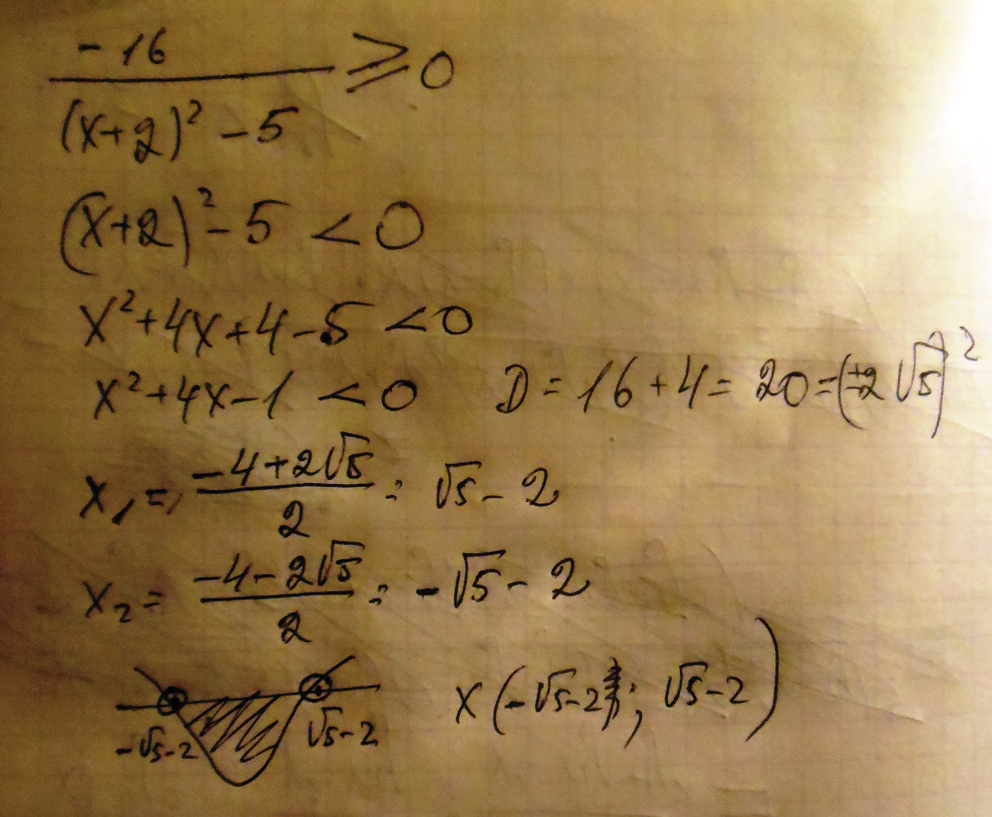 -16 / (x+2)² - 5 ⩾ 0
(x+2)² - 5 < 0
x² + 4x + 4 - 5 < 0
x² + 4x - 1 < 0 D = 16 + 4 = 20 = (±2√5)²
x₁ = (-4 + 2√5) / 2 = √5 - 2
x₂ = (-4 - 2√5) / 2 = -√5 - 2
-√5-2 √5-2 x (-√5-2; √5-2)